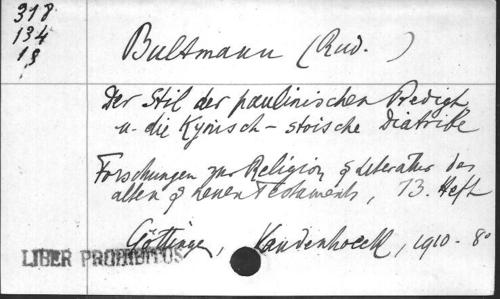 318
134
13
Bultmann (Rud. )
Der Stil der paulinischen Predigt
u. die Kynisch-stoische Diatribe
Forschungen zur Religion & Literatur des
alten & neuen Testaments, 13. Heft
Göttingen, Vandenhoeck, 1910 - 8°
LIBER PROHIBITUS